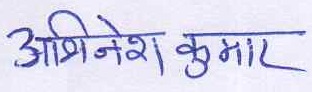 अभिनेश कुमार